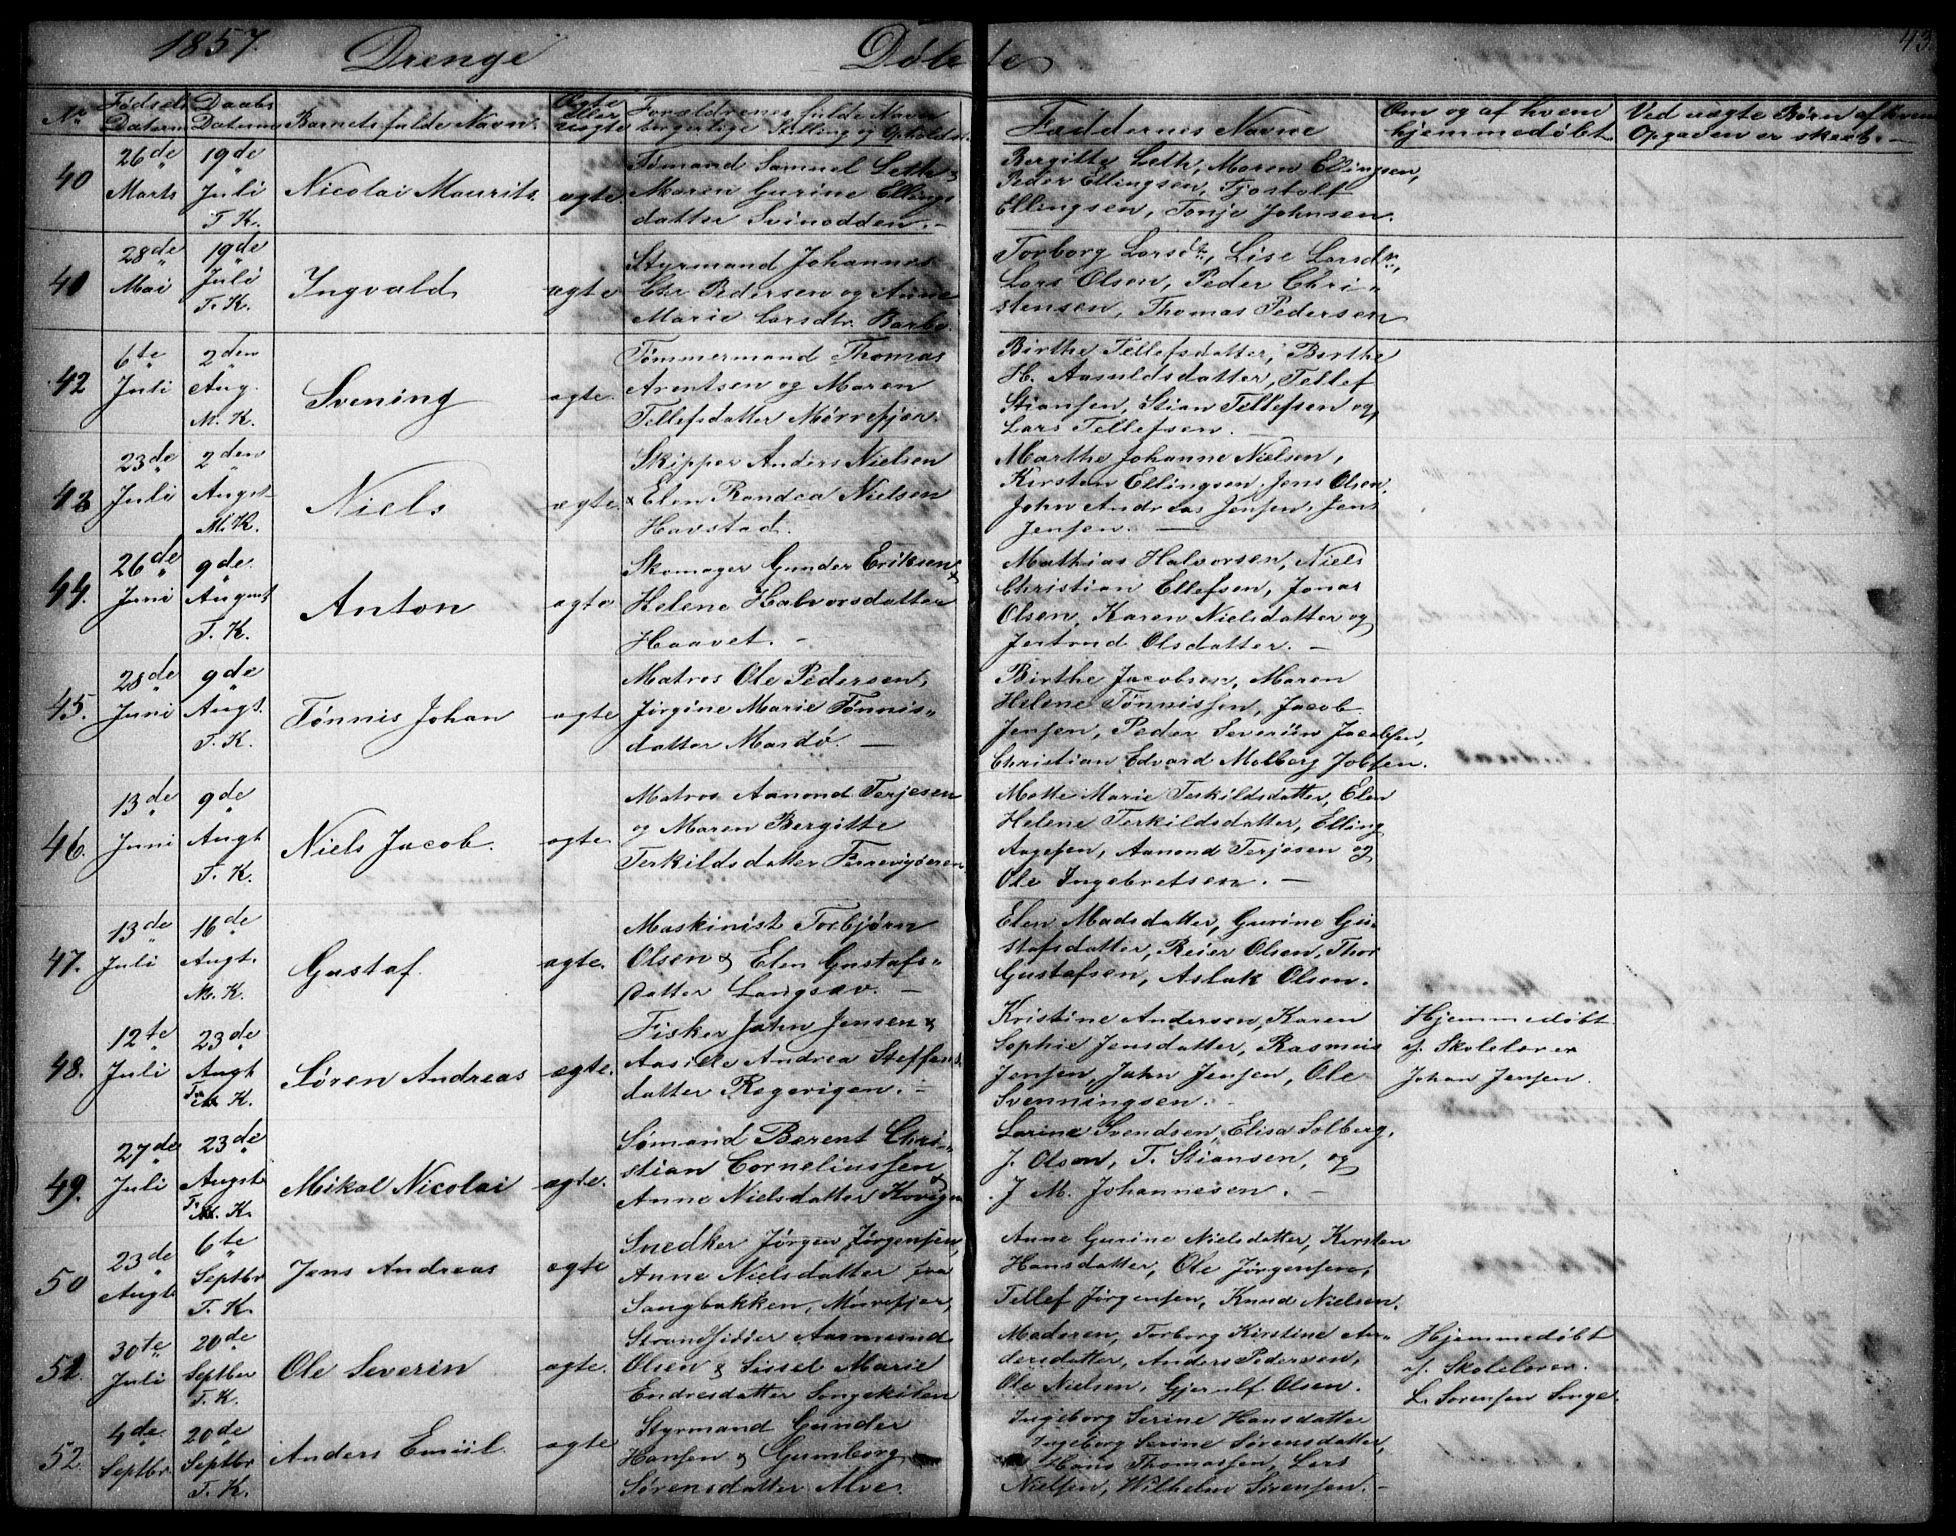 1857. Drenge Døbte 43.
Nr. Fødsels Datum Daabs Datum Barnets fulde Navn. Ægte eller uægte Forældrenes fulde Navn borgerlige Stilling og Opholdst. Faddernes Navne Om og af hvem hjemmedøbt. Ved uægte Børn af hvem Opgaven er skeet. —
40 26de Marts 19de Juli T. K. Nicolai Maurits. ægte.
Sømand Samuel Leth &
Maren Gurine Ellings
datter Svinodden. —
Bergitte Leth, Maren Ellingsen,
Peder Ellingsen, Tjostolf
Ellingsen, Tonje Johnsen.
40 28de Mai 19de Juli T. K. Ingvald ægte
Styrmand Johannes
Chr Pedersen og Anne
Marie Larsdtr. Barbo.
Torborg Larsdtr, Lise Larsdtr,
Lars Olsen, Peder Chri-
stensen, Thomas Pedersen
42 6te Juli 2den Aug. M. K. Svening ægte.
Tømmermand Thomas
Arentsen og Maren
Tellefsdatter Mørrefjær.
Birthe Tellefsdatter, Birthe
H. Aasuldsdatter, Tellef
Stiansen, Stian Tellefsen og
Lars Tellefsen. —
43 23de Juli 2den Augst M. K. Niels ægte.
Skipper Anders Nielsen
& Elen Randea Nielsen
Havstad.
Marthe Johanne Nielsen,
Kirsten Ellingsen, Jens Olsen,
John Andreas Jensen, Jens
Jensen. —
44. 26de Juni 9de August T. K. Anton ægte
Skomager Gunder Eriksen &
Helene Halvorsdatter
Haavet. —
Mathias Halvorsen, Niels
Christian Ellefsen, Jonas
Olsen, Karen Nielsdatter og
Jertrud Olsdatter. —
45. 28de Juni 9de Augt. T. K. Tønnis Johan ægte
Matros Ole Pedersen,
Jørgine Marie Tønnis-
datter Mardø. —
Birthe Jacobsen, Maren
Helene Tønnissen, Jacob
Jensen, Peder Severin Jacobsen,
Christian Edvard Molberg Jobsen.
46. 13de Juni 9de Augt T. K. Niels Jacob. ægte.
Matros Aanond Terjesen
og Maren Bergitte
Terkildsdatter
Mette Marie Terkildsdatter, Elen
Helene Terkildsdatter, Elling
Aagesen, Aanond Terjesen og
Ole Ingebretsen. —
47. 13de Juli 16de Augt. M. K. Gustaf. ægte.
Maskinist Torbjørn
Olsen & Elen Gustafs-
datter Langsæv. —
Elen Madsdatter, Gurine Gu-
stafsdatter, Reier Olsen, Thor
Gustafsen, Aslak Olsen.
48. 12te Juli 23de Augt T. K. Søren Andreas ægte.
Fisker Jahn Jensen &
Andrea Steffens
datter Rægevigen. —
Kristine Andersen, Karen
Sophie Jensdatter, Rasmus
Jensen, Jahn Jensen, Ole
Svenningsen. —
Hjemmedøbt
af Skolelærer
Johan Jensen.
49. 27de Juli 23de Augst T. K. Mikal Nicolai ægte.
Sømand Berent Chri-
stian Corneliussen &
Anne Nielsdatter Kovigen
Larine Svendsen, Elisa Solberg,
J. Olsen, T. Stiansen, og
J. M. Johannesen. —
50 23de Augt. 6te Septbr T. K. Jens Andreas ægte
Snedker Jørgen Jørgensen,
Anne Nielsdatter fra
Sangbakken, Mørrefjær,
Anne Gurine Nielsdatter, Kirsten
Hansdatter, Ole Jørgensen,
Tellef Jørgensen, Knud Nielsen.
51. 30te Juli 20de Septber T. K. Ole Severin ægte.
Strandsidder Aasmund
Olsen & Sissel Marie
Endresdatter Songekilen
Moderen, Torborg Kirstine An-
dersdatter, Anders Pedersen,
Ole Nielsen, Gjerulf Olsen.
Hjemmedøbt
af Skolelærer
L. Sørensen Songe.
52. 4de Septbr. 20de Septbr T. K. Anders Emiil. ægte
Styrmand Gunder
Hansen & Gumborg
Sørensdatter Alve.
Ingeborg Serine Hansdatter
Ingeborg Serine Sørensdatter,
Hans Thomassen, Lars
Nielsen, Wilhelm Sørensen. —